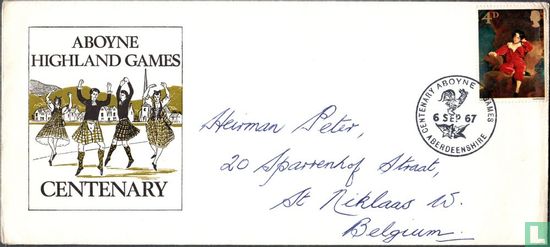 ABOYNE
HIGHLAND GAMES
CENTENARY
4D
CENTENARY ABOYNE GAMES
6 SEP 67
ABERDEENSHIRE
Heirman Peter,
20 Sparrenhof Straat,
St Niklaas W.
Belgium.